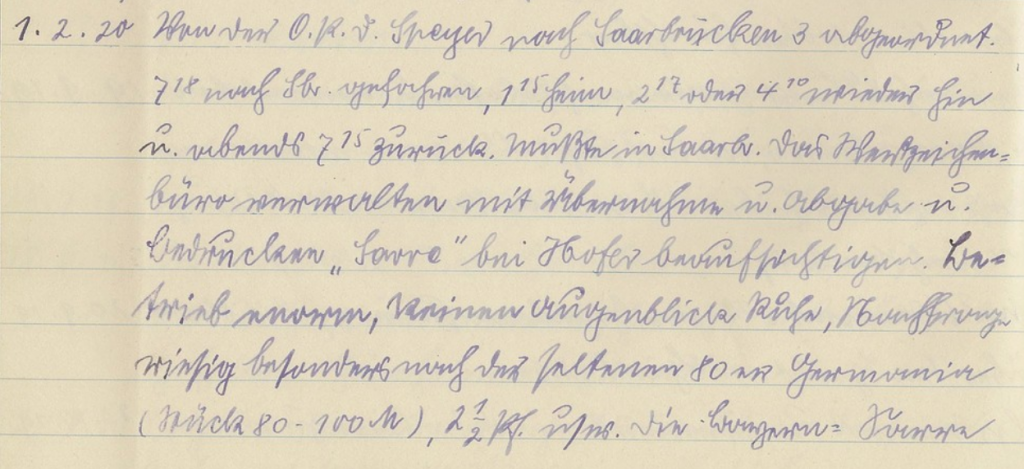 1. 2. 20 Von der O.P.D. Speyer nach Saarbrücken 3 abgeordnet.
7 18 nach Sbr. gefahren, 1 15 heim, 2 17 oder 4 10 wieder hin
u. abends 7 15 zurück. Mußte in Saarb. das Wertzeichen=
büro verwalten mit Übernahme u. Abgabe u.
Bedrucken „Sarre“ bei Hofer beaufsichtigen. Be=
trieb enorm, keinen Augenblick Ruhe, Nachfrage
riesig besonders nach der seltenen 80 er Germania
(Stück 80 - 100 M), 2 1/2 Pf. usw. Die Bayern= Sarre